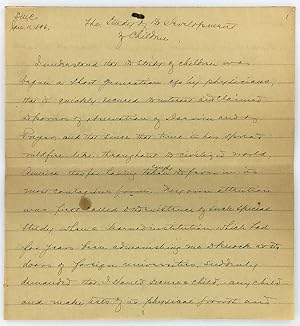 S.W.C.
Jan. 11, 1896.
1
The Study of the Development
of Children.
I understand that the study of children was
begun a short generation ago by physicians,
that it quickly secured the interest and claimed
the powers of observation of Darwin and of
Preyer, and that since that time it has spread
wildfire-like throughout the civilized world,
America thus far having taken the fever in its
most contagious form. My own attention
was first called to the existence of such special
study when a learned institution which had
for years been admonishing me to knock at the
doors of foreign universities, suddenly
demanded that I should secure a child, any child
and make tests of its physical growth and